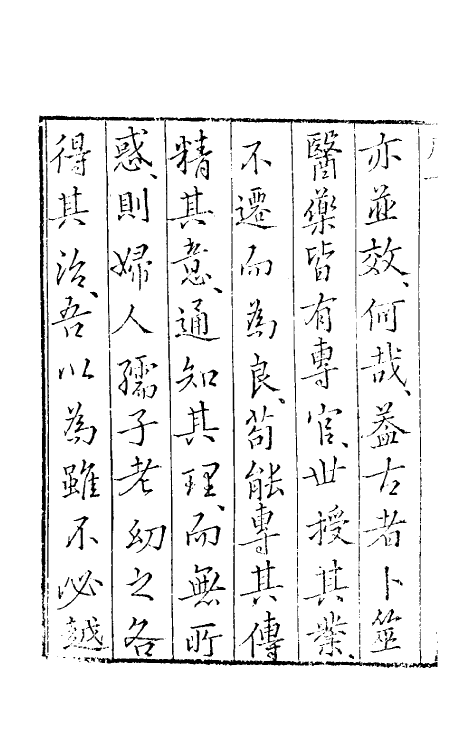 亦並效、何哉、葢古者卜筮
醫藥皆有專官、世授其業、
不遷而為良、苟能專其傳
精其意、通知其理、而無所
惑、則婦人孺子老幼之各
得其治、吾以為雖不必越